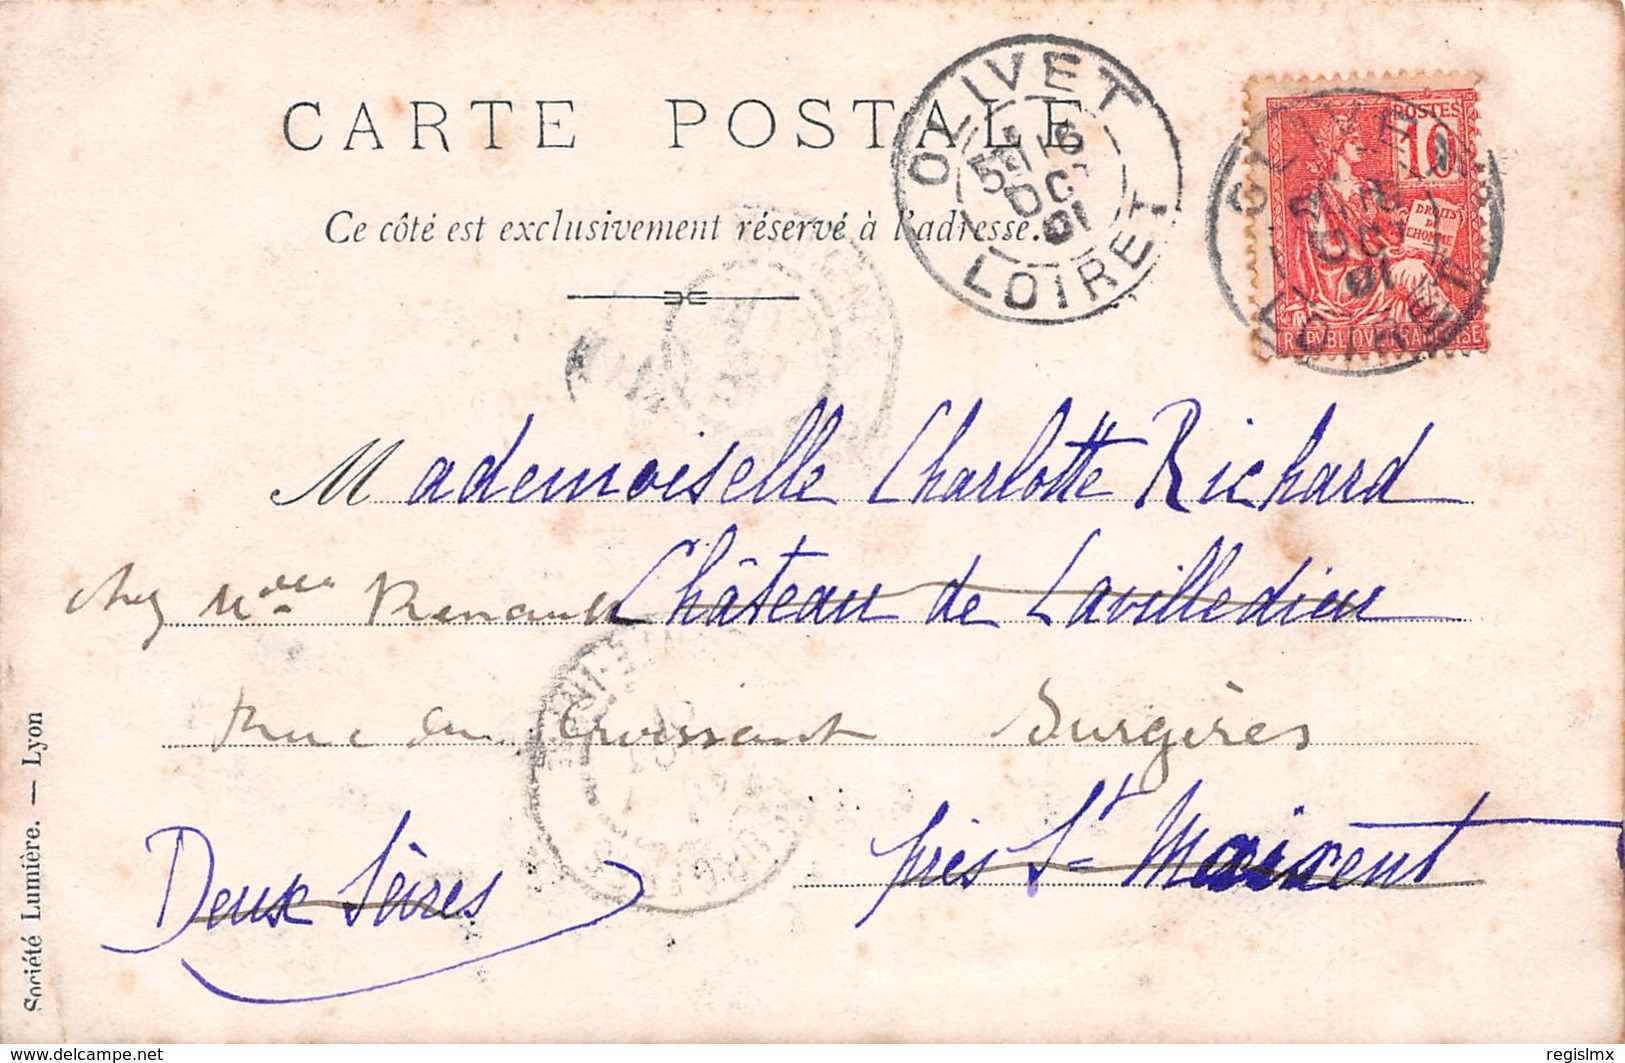 CARTE POSTALE
Ce côté est exclusivement réservé à l'adresse.
OLIVET
16
OCT
01
LOIRET
POSTES
10
DROITS
DE
L'HOMME
REPVBLIQVE FRANÇAISE
Mademoiselle Charlotte Richard
chez Mme Renault Château de Lavilledieu
Rue du Croissant Surgères
près St Maixent
Deux Sèvres
Société Lumière. — Lyon
delcampe.net
regislmx